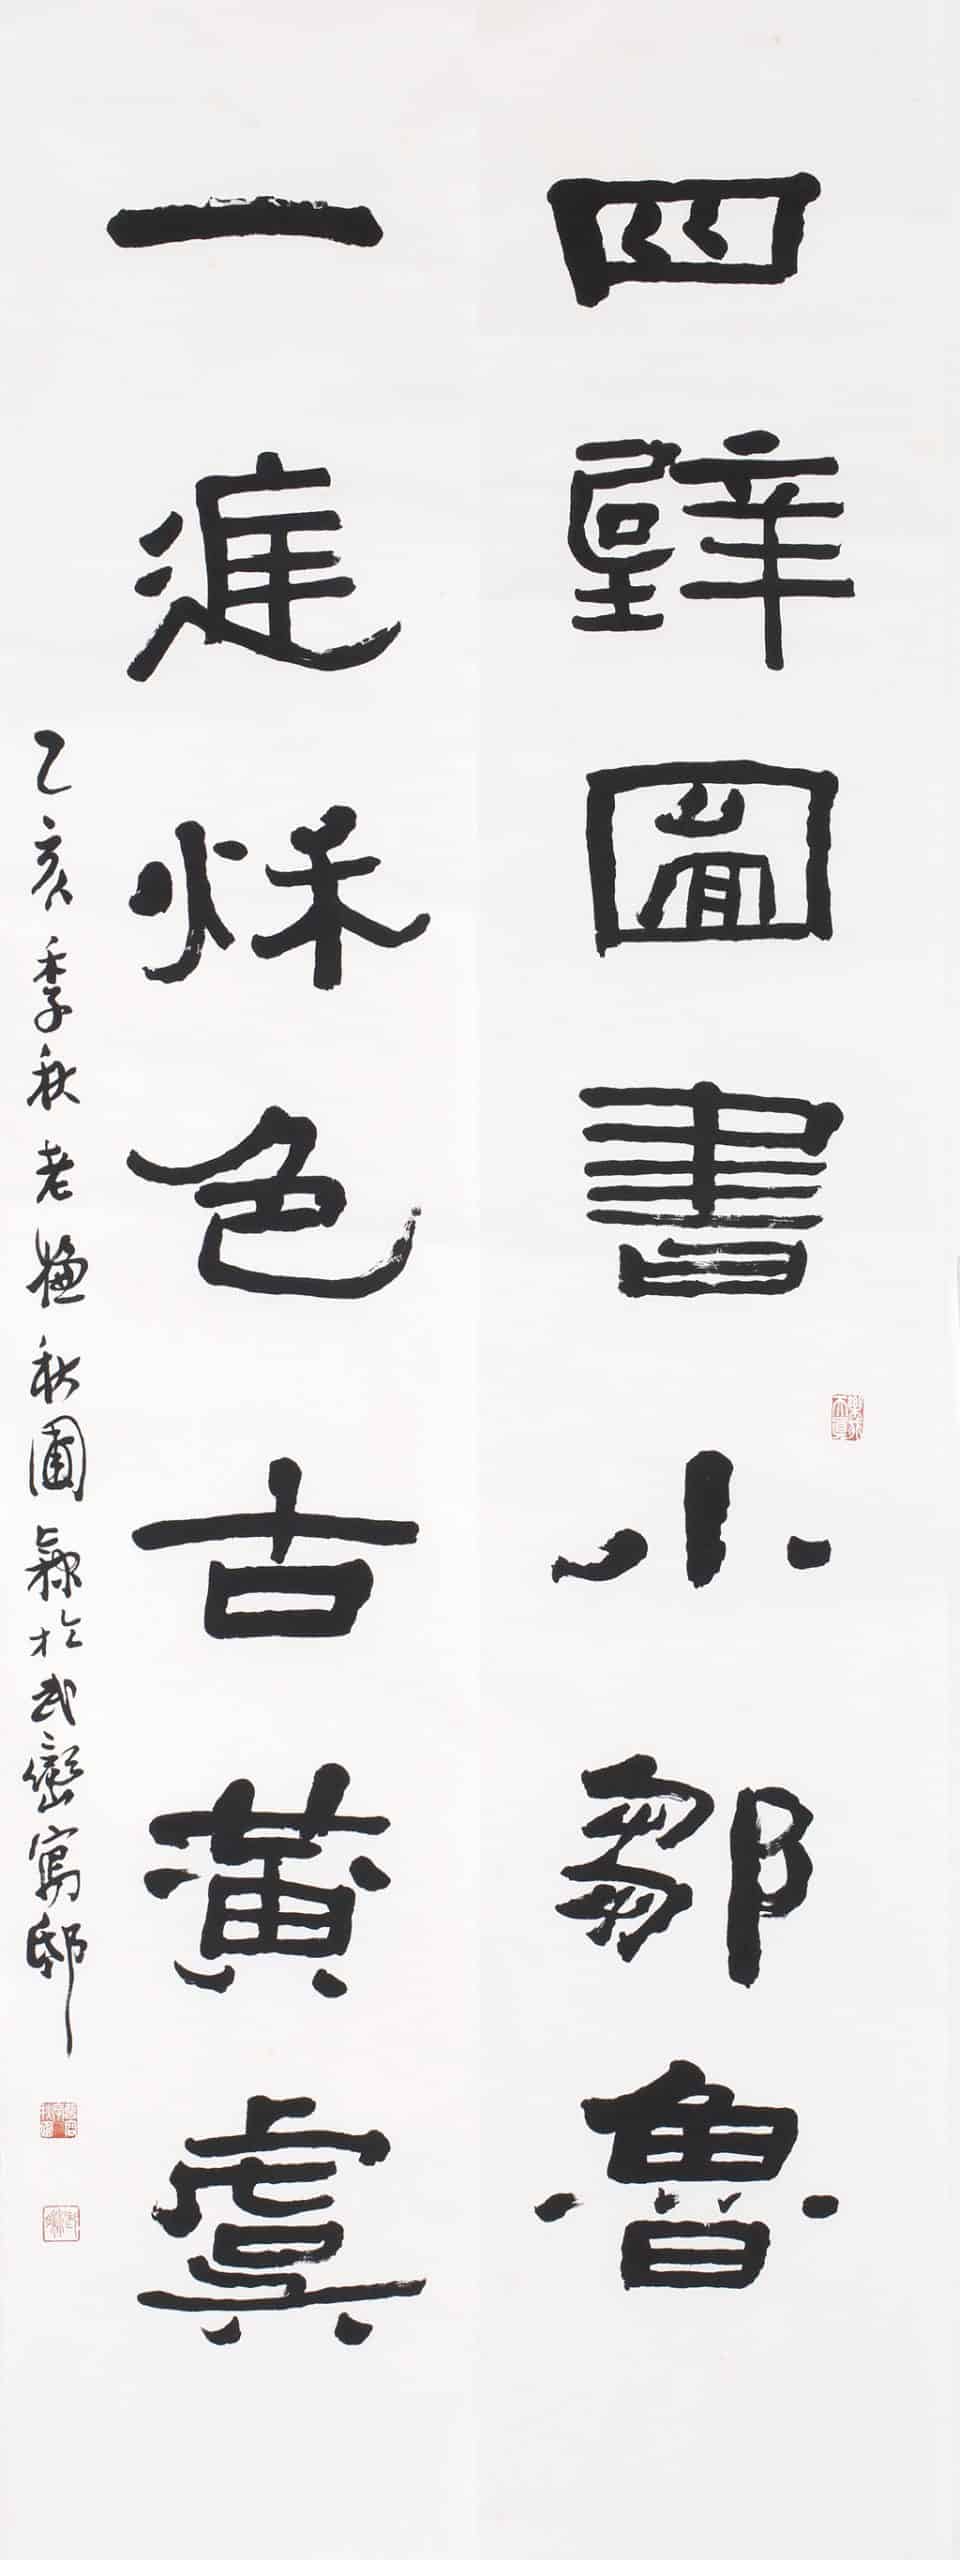 四壁圖書小鄒魯
一進秌色古黃虞
乙亥季秋老秋圃錄於武巒寓邸